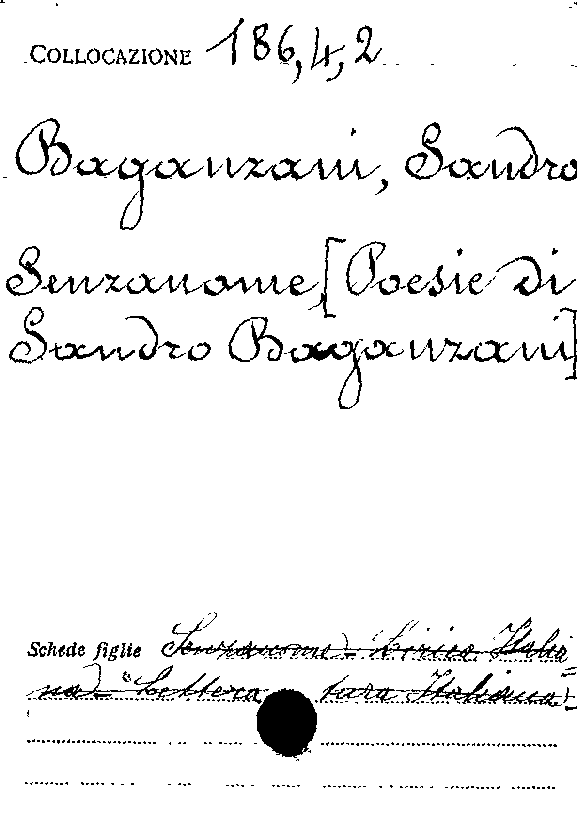 COLLOCAZIONE 186,4,2
Baganzani, Sandro
Senzanome [Poesie di
Sandro Baganzani]
Schede figlie Senzanome) - Lirica Italia
na) - Lettera tura Italiana)